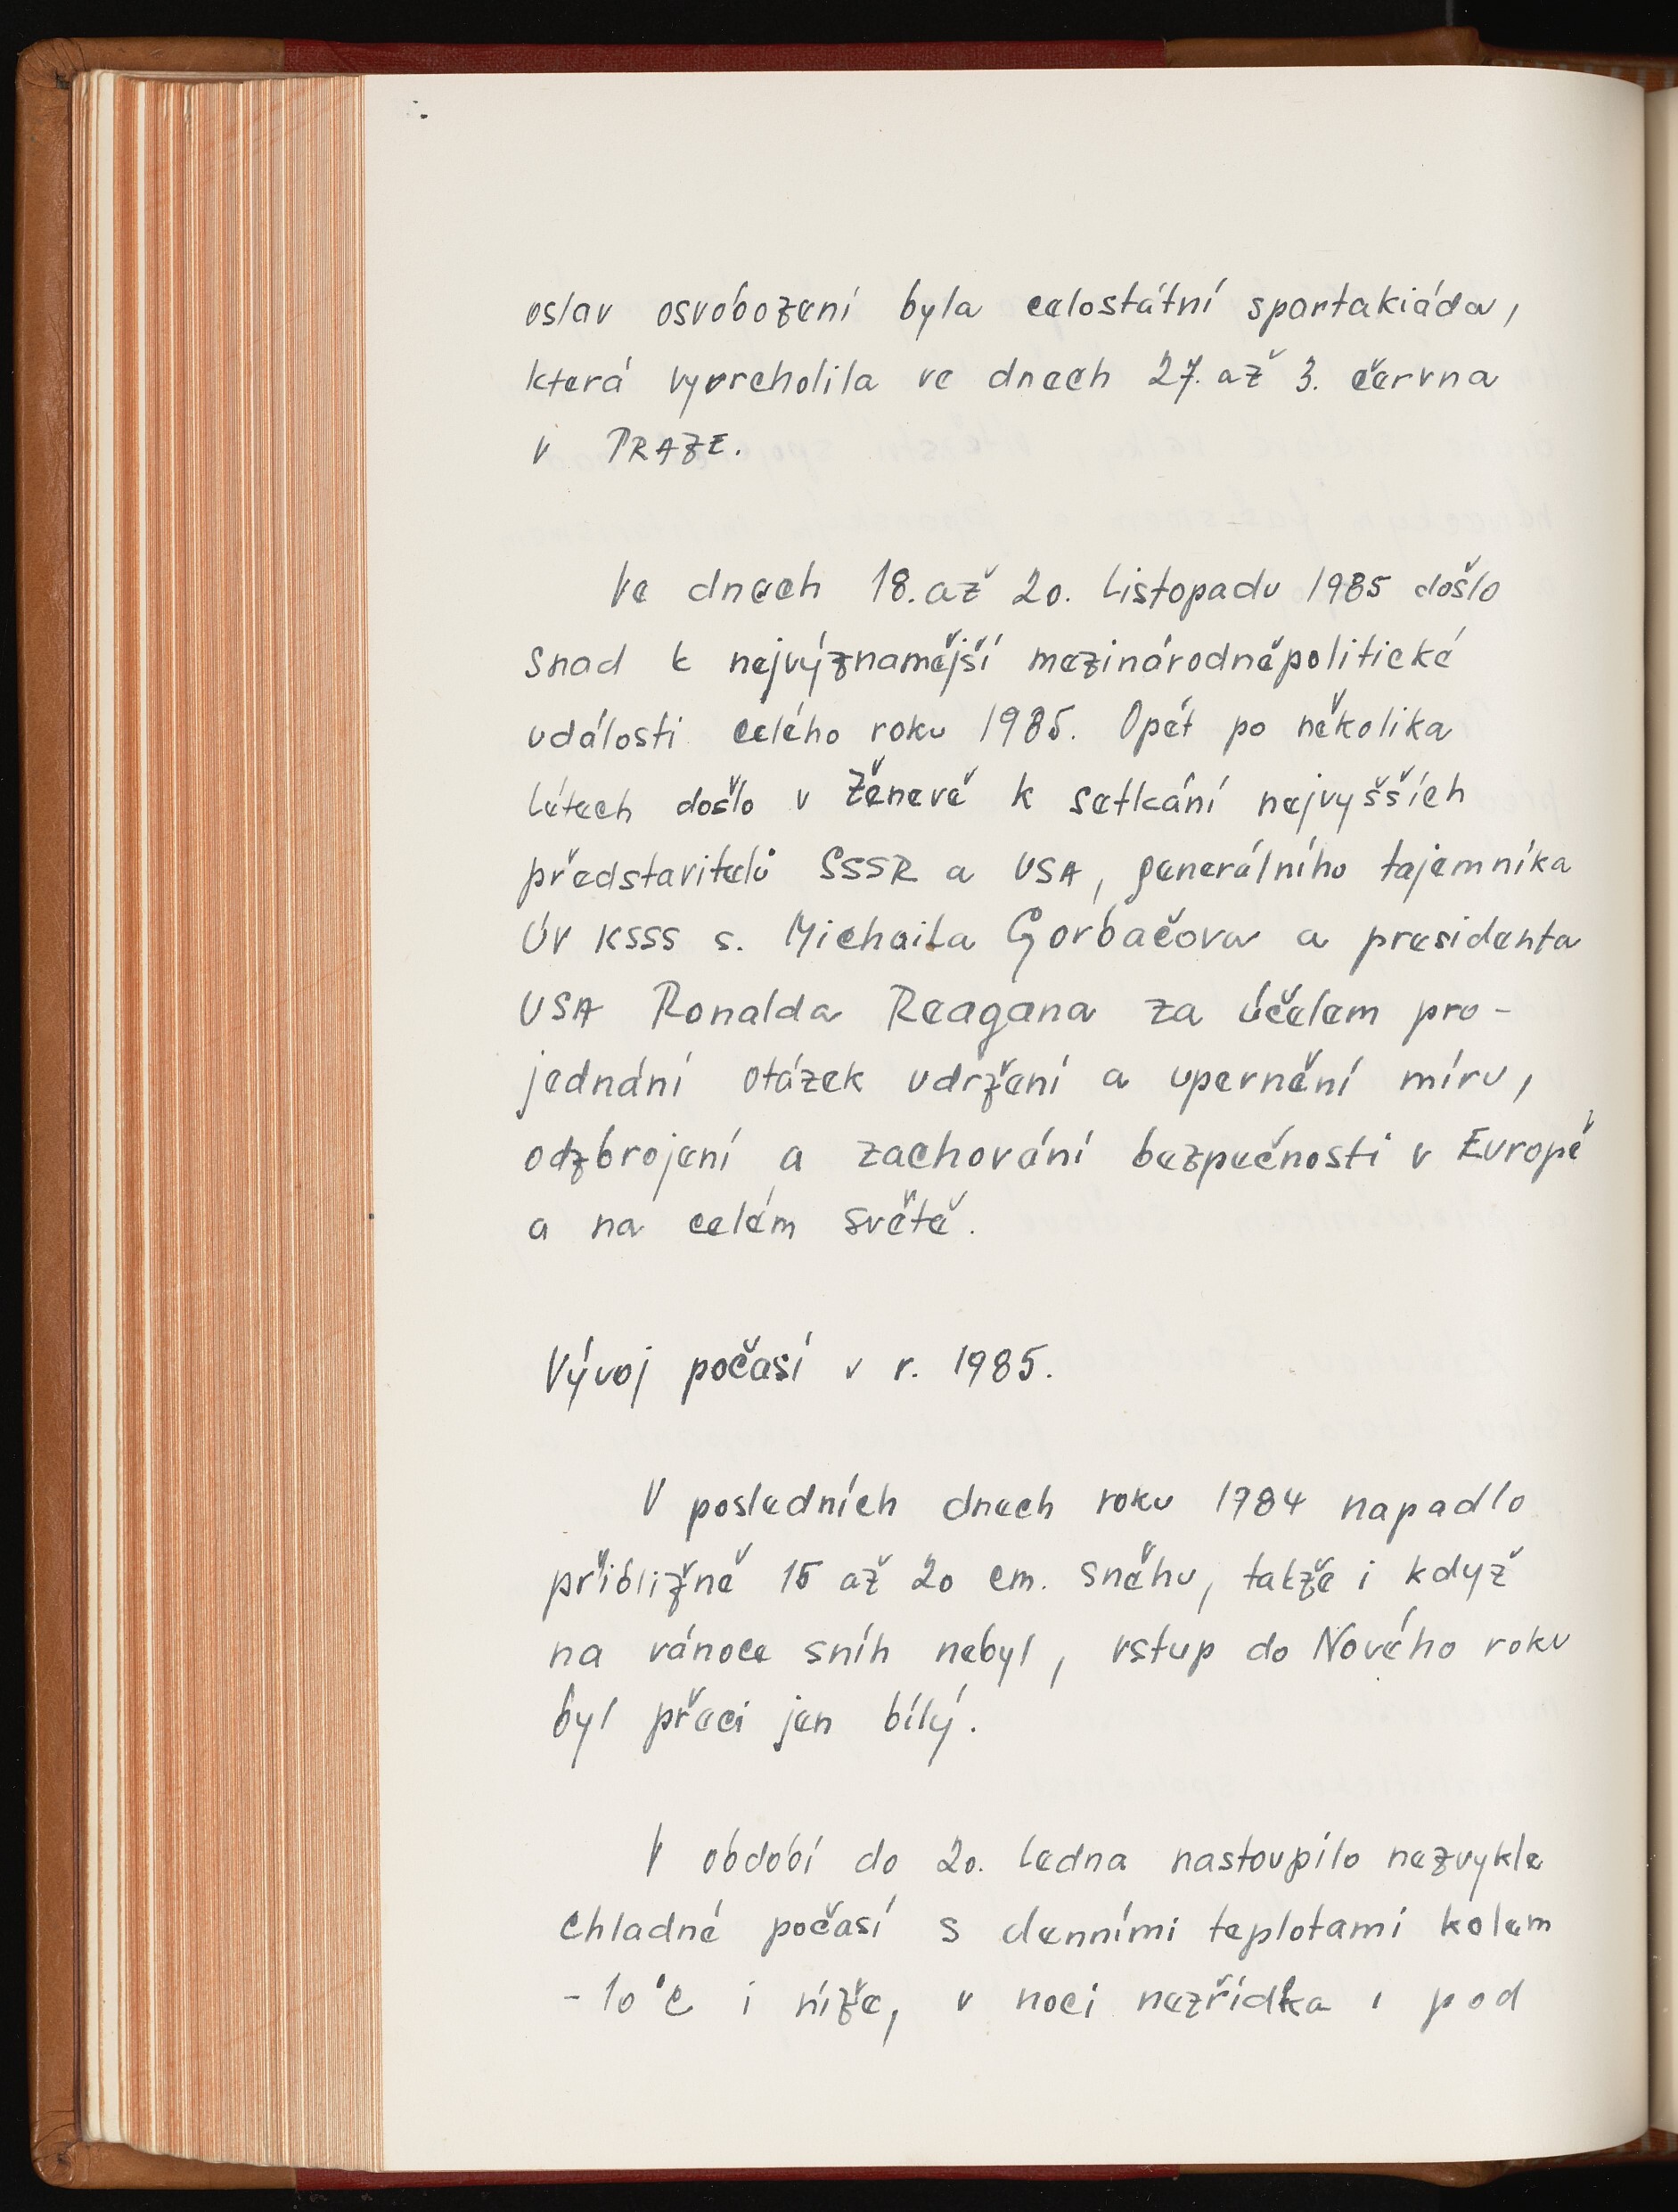 oslav osvobození byla celostátní spartakiáda,
která vyvrcholila ve dnech 27. až 3. června
v PRAZE.
Ve dnech 18. až 20. listopadu 1985 došlo
snad k nejvýznamější mezinárodněpolitické
události celého roku 1985. Opět po několika
létech došlo v Ženevě k setkání nejvyšších
představitelů SSSR a USA, generálního tajemníka
ÚV KSSS s. Michaila Gorbačova a presidenta
USA Ronalda Reagana za účelem pro-
jednání otázek udržení a upernění míru,
odzbrojení a zachování bezpečnosti v Evropě
a na celém světě.
Vývoj počasí v r. 1985.
V posledních dnech roku 1984 napadlo
přibližně 15 až 20 cm. sněhu, takže i když
na vánoce sníh nebyl, vstup do Nového roku
byl přeci jen bílý.
V období do 20. ledna nastoupilo nezvykle
chladné počasí s denními teplotami kolem
-10°C i níže, v noci nezřídka i pod